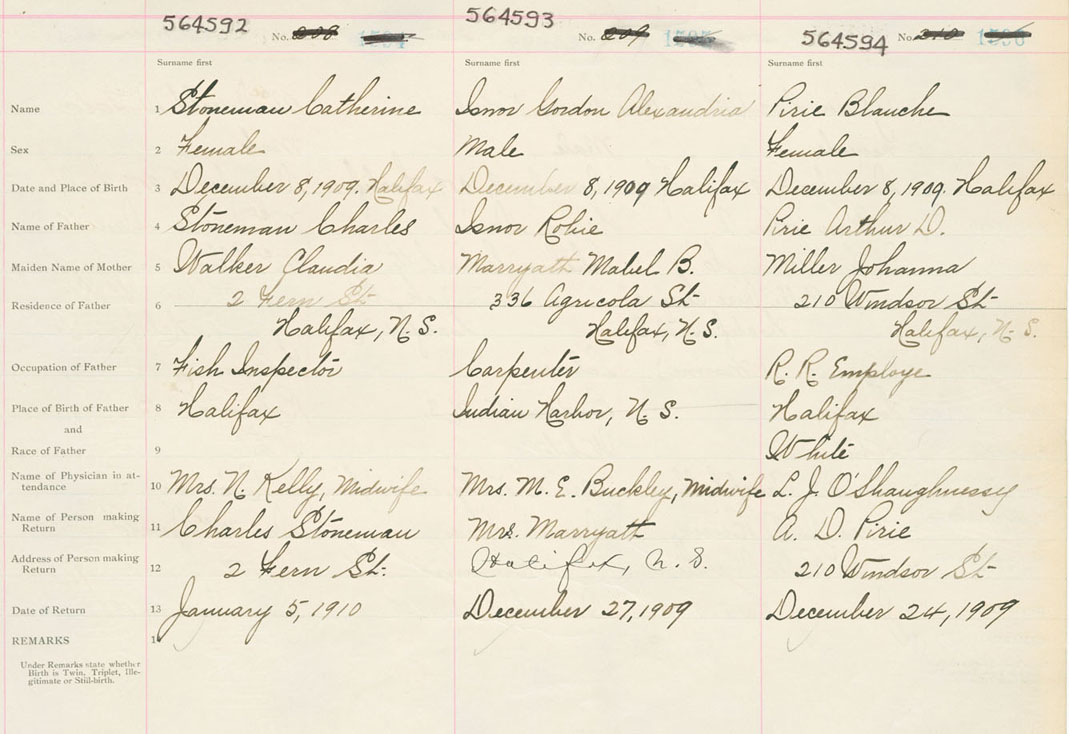 564592 564593 564594
No. No. No.
Surname first Surname first Surname first
Name 1 Stoneman Catherine Isnor Gordon Alexandria Pirie Blanche
Sex 2 Female Male Female
Date and Place of Birth 3 December 8, 1909. Halifax December 8, 1909 Halifax December 8, 1909. Halifax
Name of Father 4 Stoneman Charles Isnor Robie Pirie Arthur D.
Maiden Name of Mother 5 Walker Claudia Marryath Mabel B. Miller Johanna
Residence of Father 6 2 Fern St. 336 Agricola St. 210 Windsor St.
Halifax, N. S. Halifax, N. S. Halifax, N. S.
Occupation of Father 7 Fish Inspector Carpenter R. R. Employe
Place of Birth of Father 8 Halifax Indian Harbor, N. S. Halifax
and
Race of Father 9 White
Name of Physician in at-
tendance 10 Mrs. N. Kelly, Midwife Mrs. M. E. Buckley, Midwife L. J. O'Shaughnessy
Name of Person making
Return 11 Charles Stoneman Mrs. Marryath A. D. Pirie
Address of Person making
Return 12 2 Fern St. Halifax, N. S. 210 Windsor St.
Date of Return 13 January 5, 1910 December 27, 1909 December 24, 1909
REMARKS
Under Remarks state whether
Birth is Twin, Triplet, Ille-
gitimate or Still-birth.